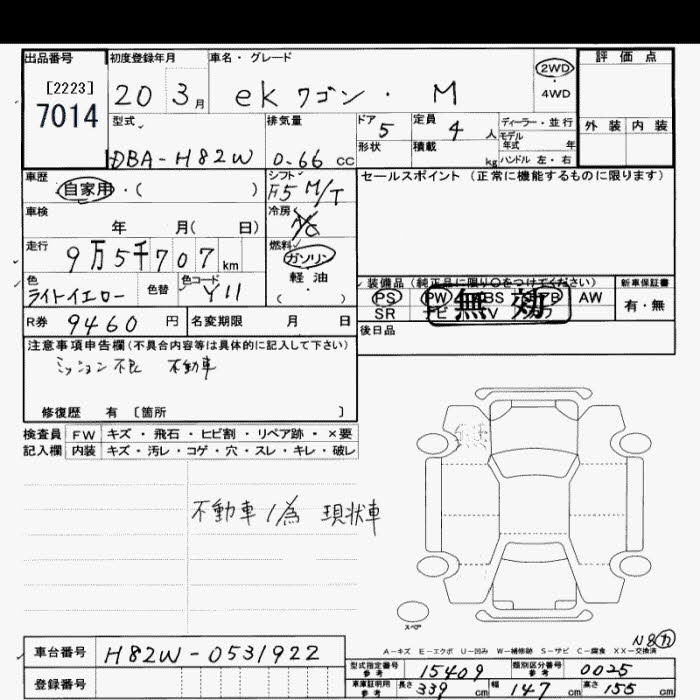 出品番号 初度登録年月 車名・グレード 評価点
[2223] 7014 20 3月 ekワゴン・M 2WD・4WD
型式 排気量 ドア 5 定員 4人 ディーラー・並行 外装 内装
形状 積載 kg モデル年式 年
DBA-H82W 0.66 CC ハンドル 左・右
車歴 シフト F5 M/T セールスポイント(正常に機能するものに限ります)
自家用・( )
車検 冷房 A/C
年 月( 日)
走行 9万5千707km 燃料 ガソリン
軽油
( )
色 ライトイエロー 色替 色コード Y11
装備品(純正品に限り○をつけてください) 新車保証書
PS PW ABS AW 有・無
SR ナビ TV
無効
R券 9460円 名変期限 月 日 後日品
注意事項申告欄(不具合内容等は具体的に記入して下さい)
ミッション不良 不動車
修復歴 有 〔箇所 〕
検査員 FW キズ・飛石・ヒビ割・リペア跡・×要
記入欄 内装 キズ・汚レ・コゲ・穴・スレ・キレ・破レ
不動車ノ為 現状車
スペア
N8カ
A-キズ E-エクボ U-凹み W-補修跡 S-サビ C-腐食 XX-交換済
車台番号 H82W-0531922
型式指定番号 参考 15409 類別区分番号 参考 0025
登録番号
車庫証明用 参考 長さ 339cm 幅 147cm 高さ 155cm